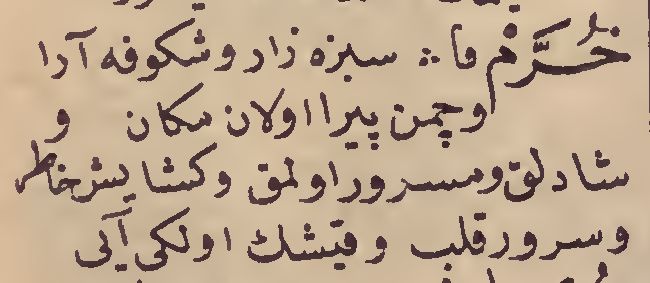 خُرَّمْ فا : سبزه زار و شكوفه آرا
و چمن پيرا اولان مكان و
شادلق و مسرور اولمق و كشايش خاطر
و سرور قلب و قيشك اولكى آيى